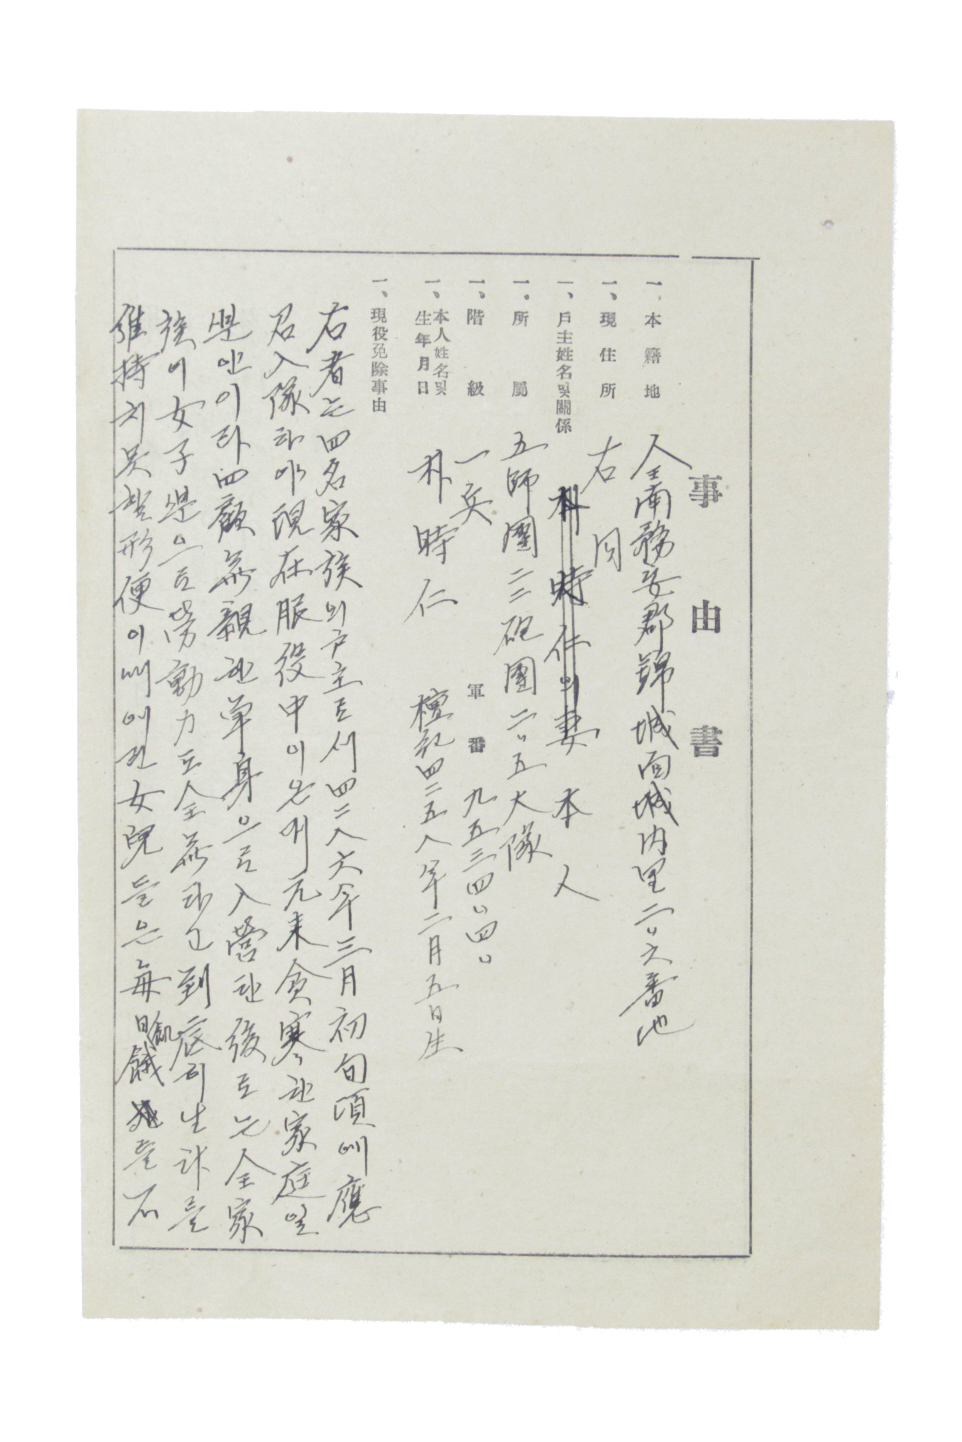 事由書
一、本籍地 全南務安郡錦城面城內里二〇六番地
一、現住所 右同
一、戶主姓名및關係 朴時仁의妻 本人
一、所屬 五師團二二砲團二〇五大隊
一、階級 一兵 軍番 九五三四〇四〇
一、本人姓名및生年月日 朴時仁 檀紀四二五八年二月五日生
一、現役免除事由
右者는四名家族의戶主로서四二八六年三月初旬頃에應
召入隊하야現在服役中이온데元來貧寒한家庭일
뿐안이라四顧無親한單身으로入營한後로는全家
族이女子뿐으로勞動力도全無하고到底히生計를
維持치못할形便이며어린女兒들은每日飢餓를不